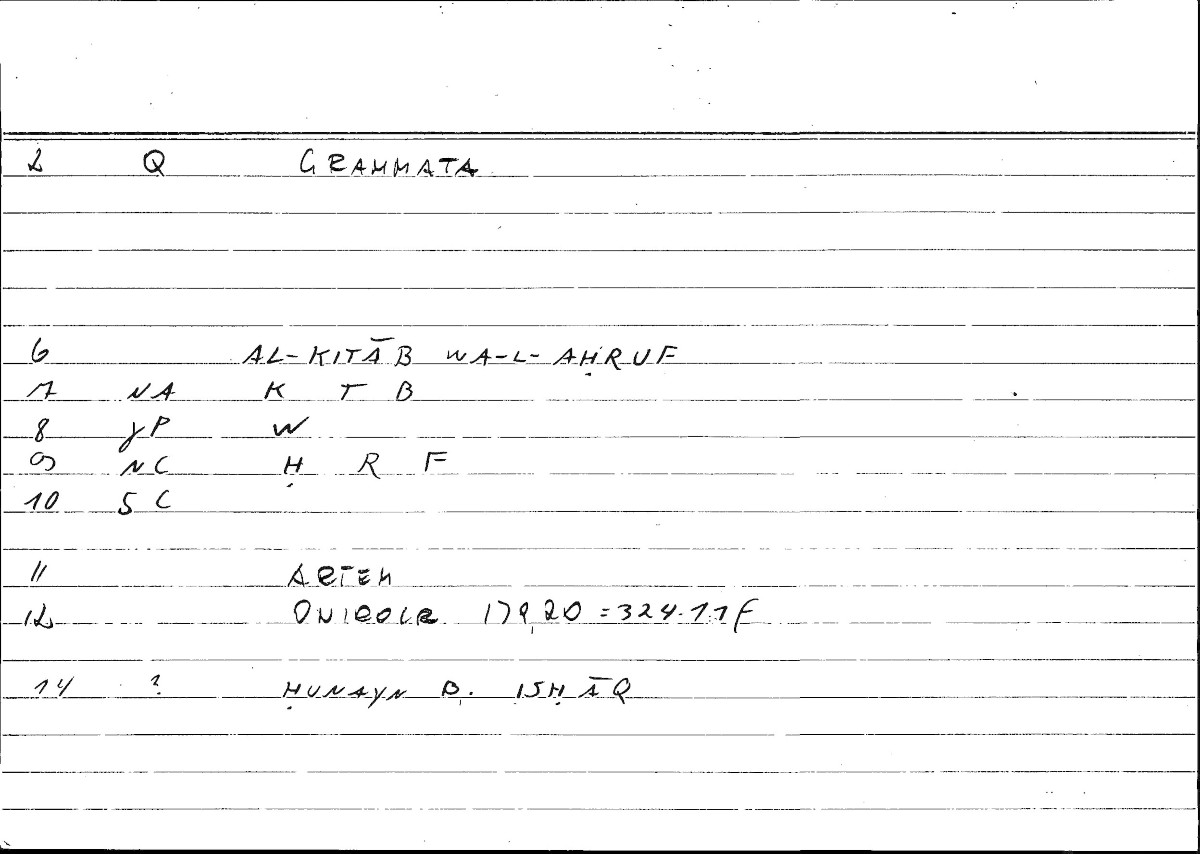 2 Q GRAMMATA
6 AL-KITĀB WA-L-AḤRUF
7 NA K T B
8 YP W
9 NC Ḥ R F
10 SC
11 ARTEM
12 ONIROCR 179,20 = 324.11F
14 ? ḤUNAYN B. ISḤĀQ